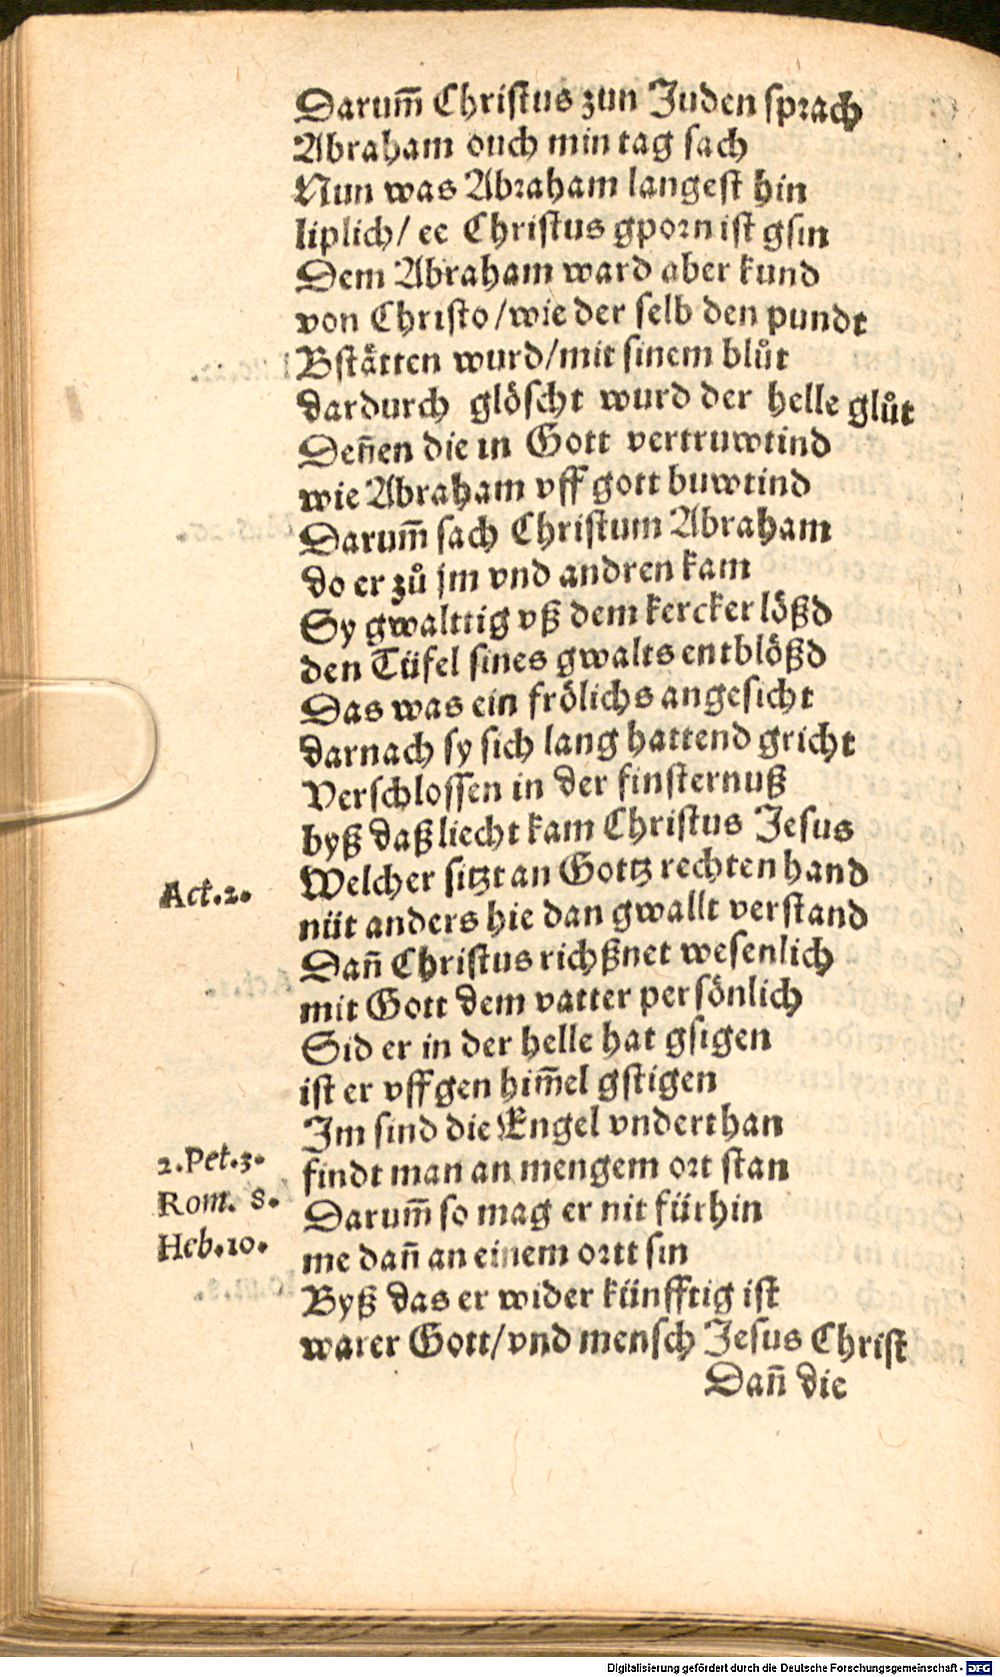 Darum̃ Christus zun Juden sprach
Abraham ouch min tag sach
Nun was Abraham langest hin
liplich/ ee Christus gporn ist gsin
Dem Abraham ward aber kund
von Christo/wie der selb den pundt
Bstätten wurd/mit sinem blůt
dardurch glöscht wurd der helle glůt
Deñen die in Gott vertruwtind
wie Abraham vff gott buwtind
Darum̃ sach Christum Abraham
do er zů jm vnd andren kam
Sy gwalttig vß dem kercker lößd
den Tüfel sines gwalts entblößd
Das was ein frölichs angesicht
darnach sy sich lang hattend gricht
Verschlossen in der finsternuß
byß daß liecht kam Christus Jesus
Act.2. Welcher sitzt an Gottz rechten hand
nüt anders hie dan gwallt verstand
Dañ Christus richßnet wesenlich
mit Gott dem vatter persönlich
Sid er in der helle hat gsigen
ist er vffgen him̃el gstigen
Jm sind die Engel vnderthan
2.Pet.3. findt man an mengem ort stan
Rom. 8. Darum̃ so mag er nit fürhin
Heb.10. me dañ an einem ortt sin
Byß das er wider künfftig ist
warer Gott/vnd mensch Jesus Christ
Dañ die
Digitalisierung gefördert durch die Deutsche Forschungsgemeinschaft - DFG